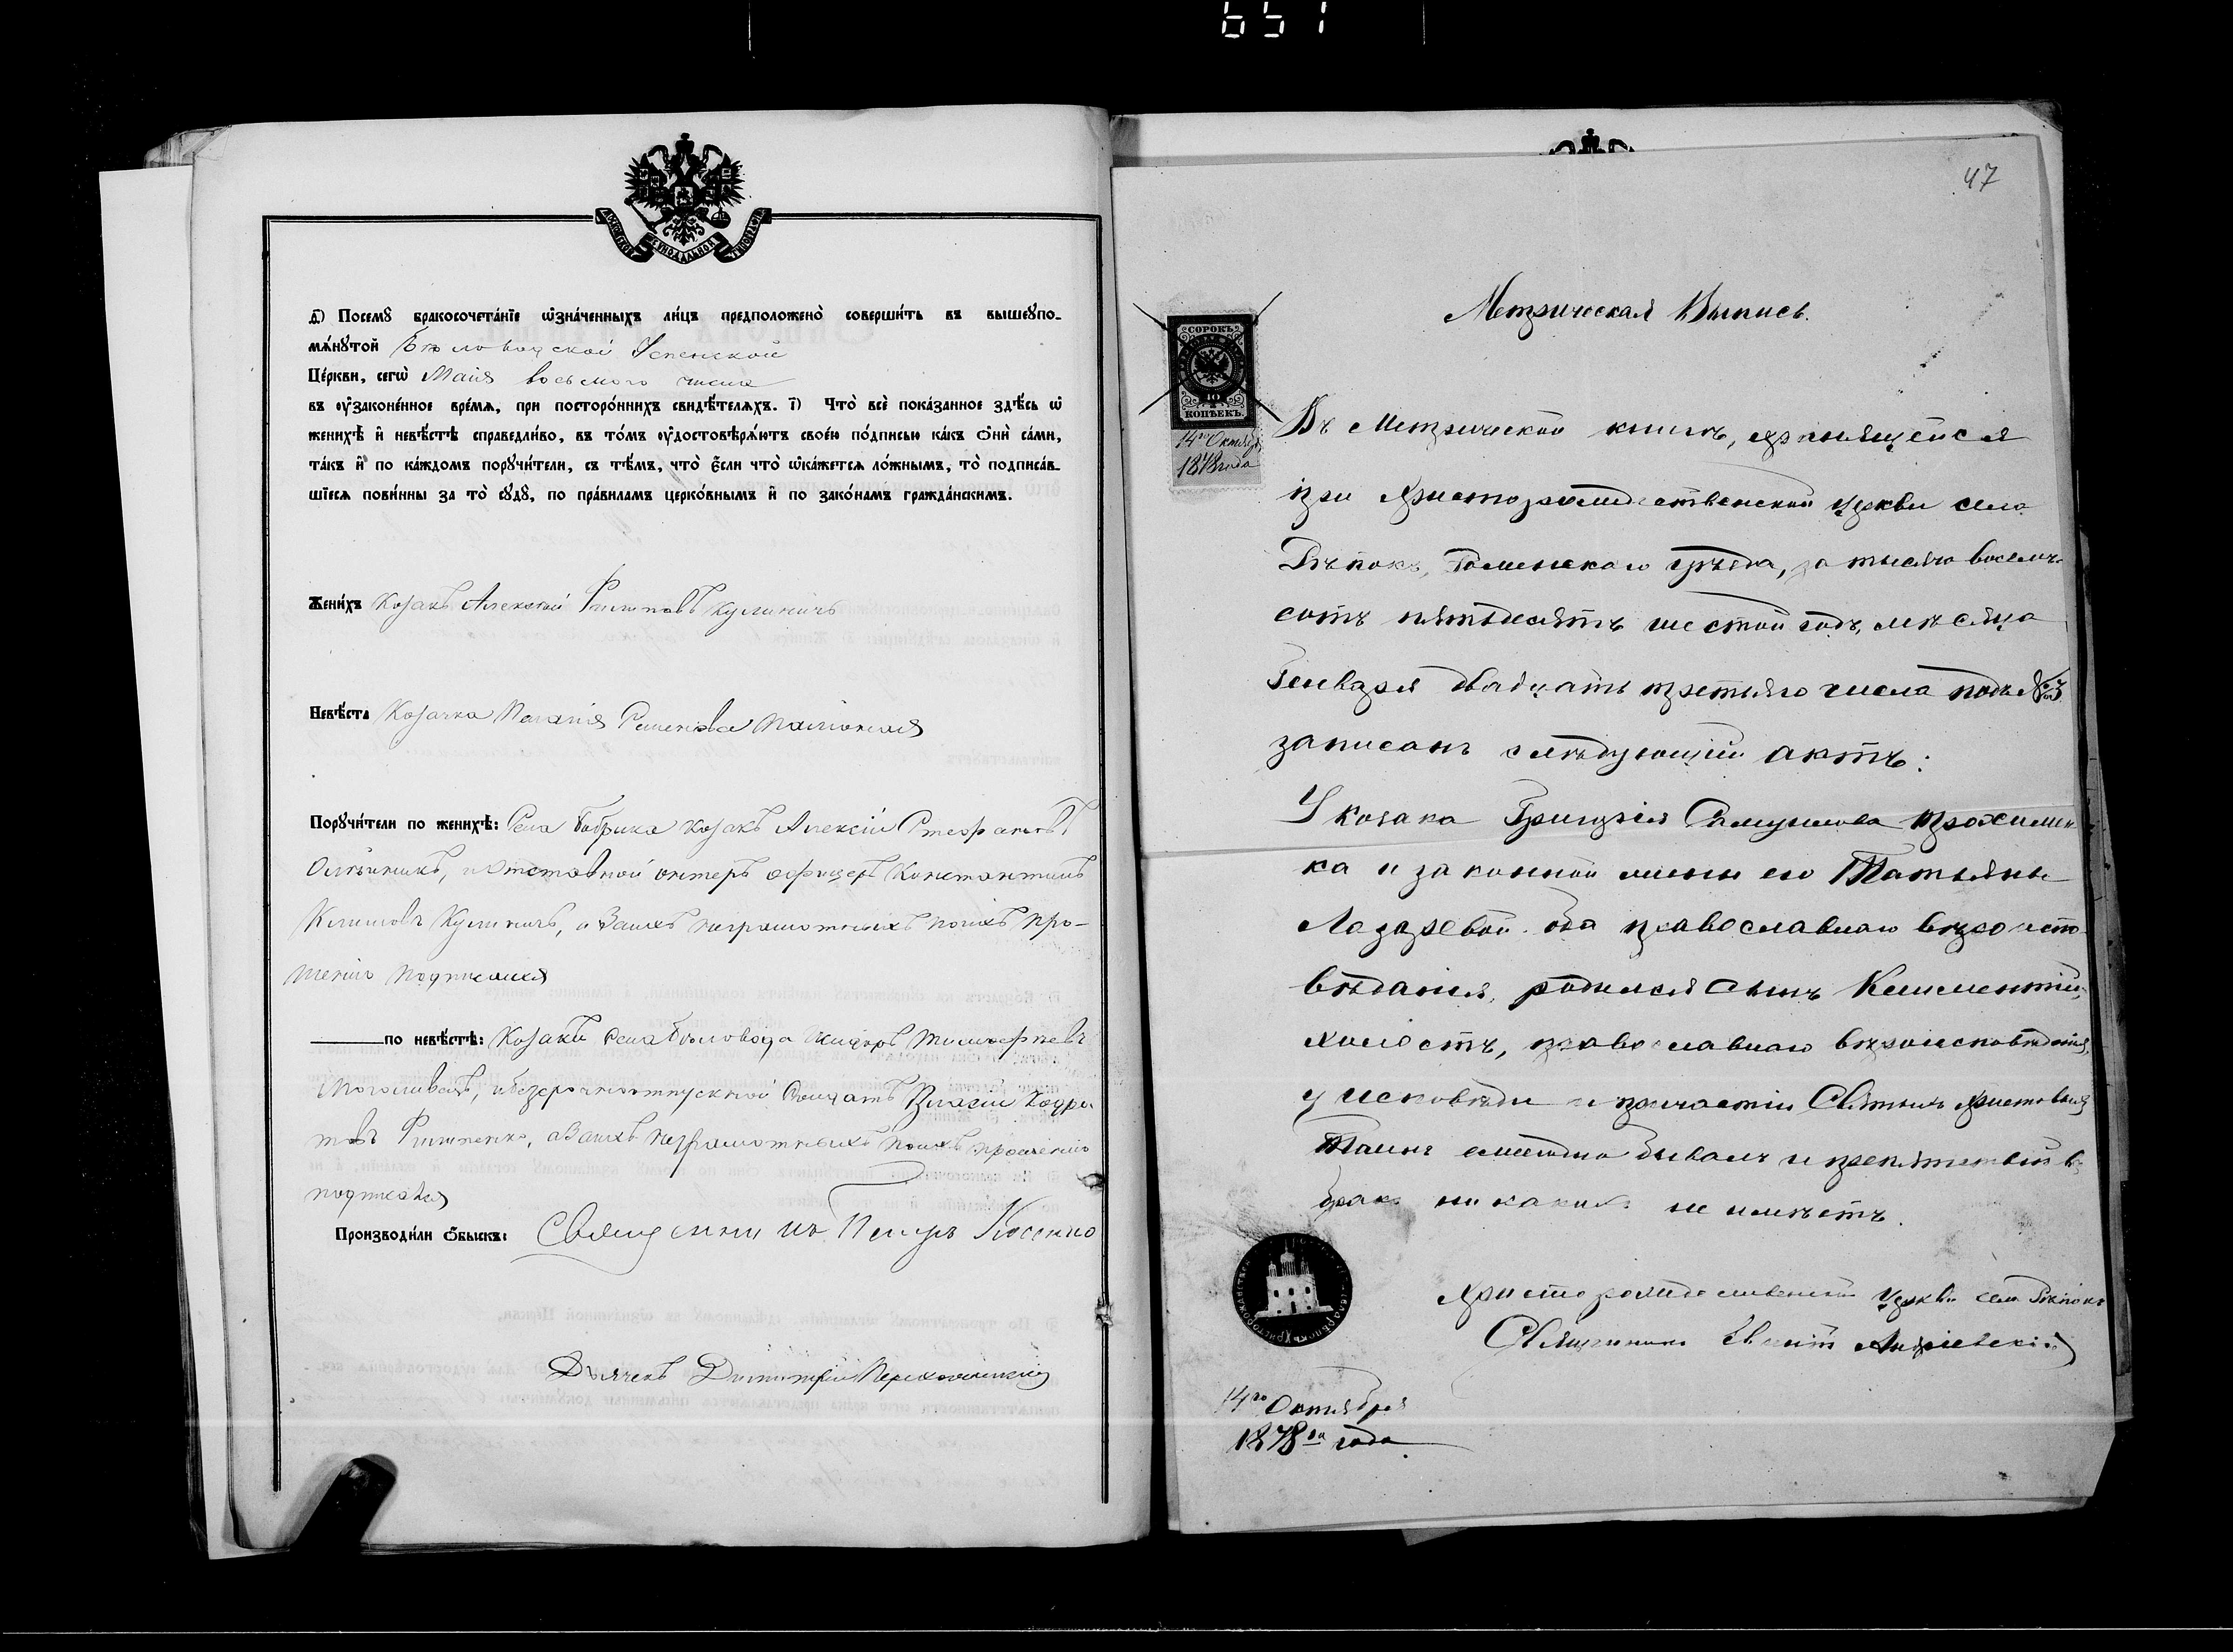 651
МОСКОВСКОЙ СѴНОДАЛЬНОЙ ТИПОГРАФІИ
д҃) Посемꙋ бракосочета́нїе ѿзна́ченныхъ ли́цъ предположено̀ соверши́ть въ вышеꙋпо-
мѧ́нꙋтой Бѣловодской Успенской
Це́ркви, сегѡ̀ Маія восьмого числа
въ ᲂу҆законе́нное вре́мѧ, при посторо́ннихъ свидѣ́телѧхъ. і҃) Что̀ всѐ пока́занное здѣ́сь ѡ҆
женихѣ̀ и҆ невѣ́стѣ справедли́во, въ то́мъ ᲂу҆достовѣрѧ́ютъ свое́ю по́дписью ка́къ ѻ҆нѝ са́ми,
та́къ и҆ по ка́ждомъ порꙋчи́тели, съ тѣ́мъ, что̀ є҆́сли что̀ ѡ҆ка́жетсѧ ло́жнымъ, то̀ подписа́в-
шїесѧ пови́нны за то̀ сꙋдꙋ̀, по пра́виламъ церко́внымъ и҆ по зако́намъ гражда́нскимъ.
Жени́хъ Козакъ Алексѣй Филиповъ Кулиничъ
Невѣ́ста Козачка Пелагія Семенова
Порꙋчи́тели по женихѣ̀: Села Бобрика козакъ Алексій Стефановъ
Олѣйникъ, и отставной унтеръ офицеръ Константинъ
Климовъ Кулиничъ, а заихъ неграмотныхъ поихъ про-
шенію подписался
по невѣ́стѣ: Козакъ села Бѣловода Тимофѣевъ
Моголивецъ, и безсрочноотпускной Солдатъ Власій Кодра
товъ Филипенко, а заихъ неграмотныхъ поихъ прошенію
подписался
Производи́ли ѻ҆́быскъ: Священникъ Петръ Косенко
Дьячекъ Димитрій
47
Метрическая Выпись.
СОРОКЪ
40
КОПѢЕКЪ.
14го Октября
1878 года
Въ Метрической книгѣ, хранящейся
при Христорождественской церкви села
Рѣпокъ, Роменскаго уѣзда, за тысяча восемь
сотъ пятьдесятъ шестой годъ, мѣсяца
Генваря двадцать третьяго числа подъ №3
записанъ слѣдующій актъ:
У козака Григорія Самуилова Прохимен-
ка и законной жены его Татьяны
Лазаревой оба православнаго вѣроиспо-
вѣданія, родился сынъ Климентій,
холостъ, православнаго вѣроисповѣданія,
у исповѣди и причастія Святыхъ Христовыхъ
Таинъ ежегодно бывалъ и препятствій въ
бракъ никакихъ не имѣетъ.
Христорождественской церкви села Рѣпокъ
Священникъ Андріевскій
14го Октября
1878го года.